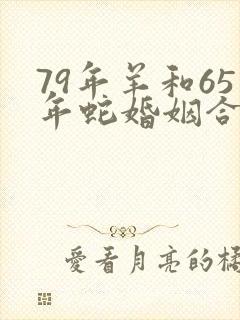 79年羊和65
年蛇婚姻合
愛看月亮的橘